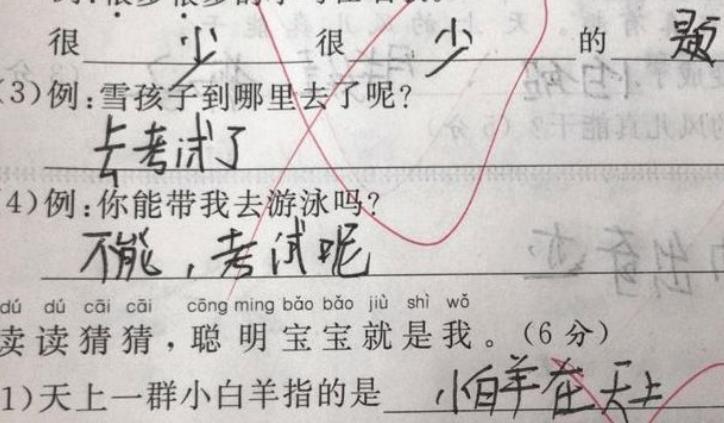 很少很少的题
(3)例:雪孩子到哪里去了呢?
去考试了
4)例:你能带我去游泳吗?
不能,考试呢
dú dú cāi cāi cōng ming bǎo bǎo jiù shì wǒ
读读猜猜,聪明宝宝就是我。(6分)
1)天上一群小白羊指的是小白羊在天上